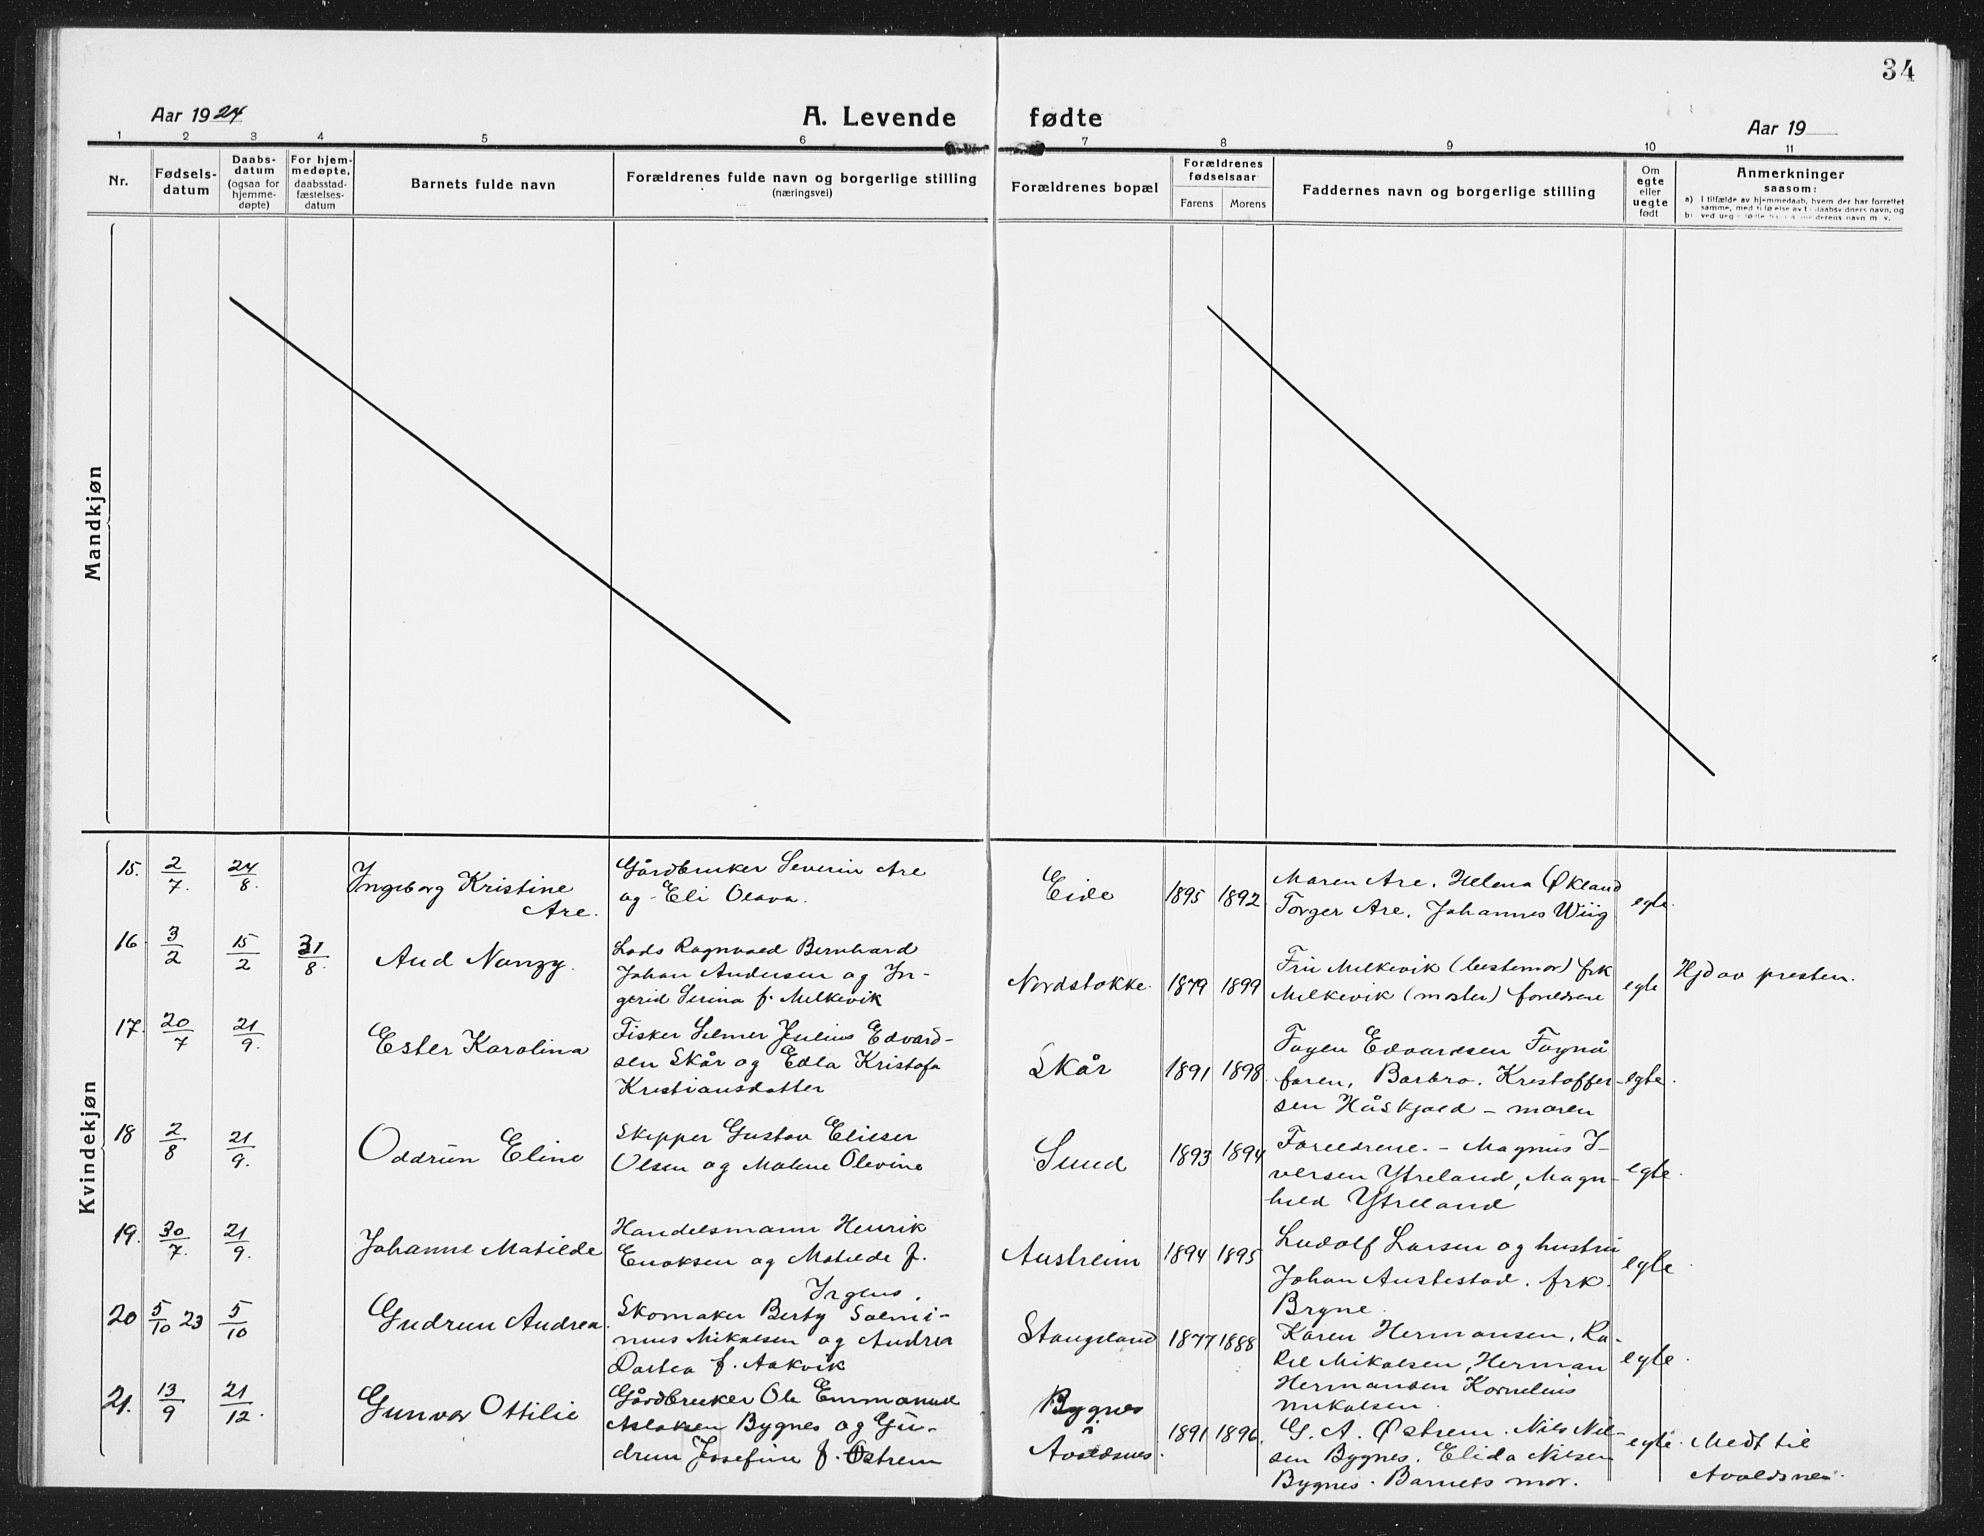 34
Aar 1924
A. Levende fødte
Aar 19
1 2 3 4 5 6 7 8 9 10 11
Nr.
Fødsels-
datum
Daabs-
datum
(ogsaa for
hjemme-
døpte)
For hjem-
medøpte,
daabsstad-
fæstelses-
datum
Barnets fulde navn
Forældrenes fulde navn og borgerlige stilling
(næringsvei)
Forældrenes bopæl
Forældrenes
fødselsaar
Farens Morens
Faddernes navn og borgerlige stilling
Om
egte
eller
uegte
født
Anmerkninger
saasom:
a) I tilfælde av hjemmedaab, hvem der har forrettet
samme, med
b)
Mandkjøn
Kvindekjøn
15. 2/7. 24/8.
Ingeborg Kristine
Are.
Gårdbruker Severin Are
og Eli Olava.
Eide
1895 1892
Maren Are. Helena Økland
Torger Are. Johannes Wiig
egte.
16. 3/2 15/2 31/8.
Aud Nanzy.
Lods Ragnvald Bernhard
Johan Andersen og In-
gerid Serina f. Melkevik
Nordstokke.
1879 1899
Fru Melkevik (bestemor) frk
Melkevik (moster) foreldrene
egte
Hjd av presten.
17. 20/7 21/9.
Ester Karolina
Fisker Selmer Julius Edvard-
sen Skår og Edla Kristofa
Kristiansdatter
Skår
1891 1898.
Edvardsen
faren, Barbro. Kristoffer-
sen Håskjold - moren
egte.
18 2/8 21/9.
Oddrun Eline
Skipper Gustav Elieser
Olsen og Malene Olevine
Sund
1893 1894
Foreldrene. - Magnus I-
versen Ytreland, Magn-
hild Ytreland
egte.
19. 30/7. 21/9.
Johanne Matilde
Handelsmann Henrik
Enoksen og Matilde f.
Irgens.
Austreim
1894 1895
Ludolf Larsen og hustru
Johan Austestad. frk.
Bryne.
egte.
20 5/10 23 5/10
Gudrun Andrea.
Skomaker Berty Salmi-
nus Mikalsen og Andrea
Dortea f. Aakvik
Stangeland
1877 1888
Karen Hermansen, Ra-
kel Mikalsen, Herman
Hermansen Kornelius
Mikalsen.
egte.
21. 13/9 21/12.
Gunvor Ottilie
Gårdbruker Ole Emmanuel
Aslaksen Bygnes og Gu-
drun Josefine f. Østrem
Bygnes
i
Avaldsnes.
1891 1896.
G. A. Østrem. Nils Nil-
sen Bygnes. Elida Nilsen
Bygnes. Barnets mor.
egte.
Medt til
Avaldsnes.